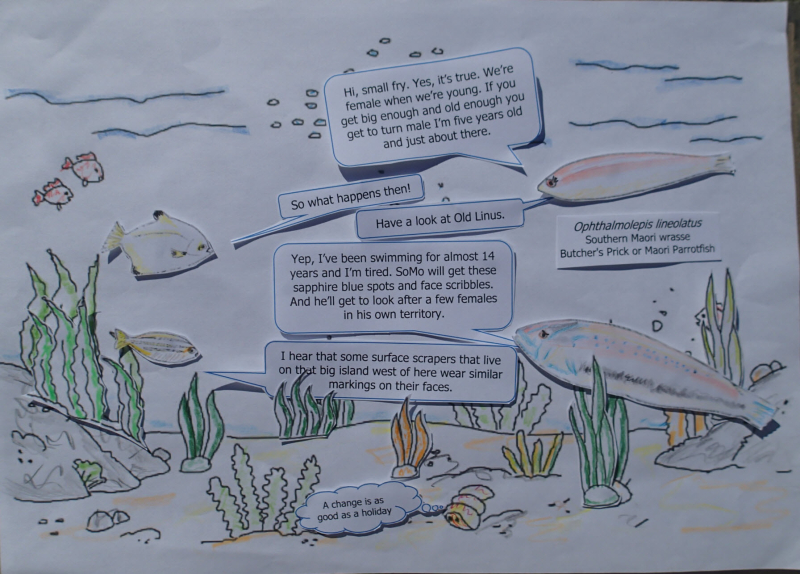 Hi, small fry. Yes, it's true. We're
female when we're young. If you
get big enough and old enough you
get to turn male I'm five years old
and just about there.
So what happens then!
Have a look at Old Linus.
Ophthalmolepis lineolatus
Southern Maori wrasse
Butcher's Prick or Maori Parrotfish
Yep, I've been swimming for almost 14
years and I'm tired. SoMo will get these
sapphire blue spots and face scribbles.
And he'll get to look after a few females
in his own territory.
I hear that some surface scrapers that live
on that big island west of here wear similar
markings on their faces.
A change is as
good as a holiday